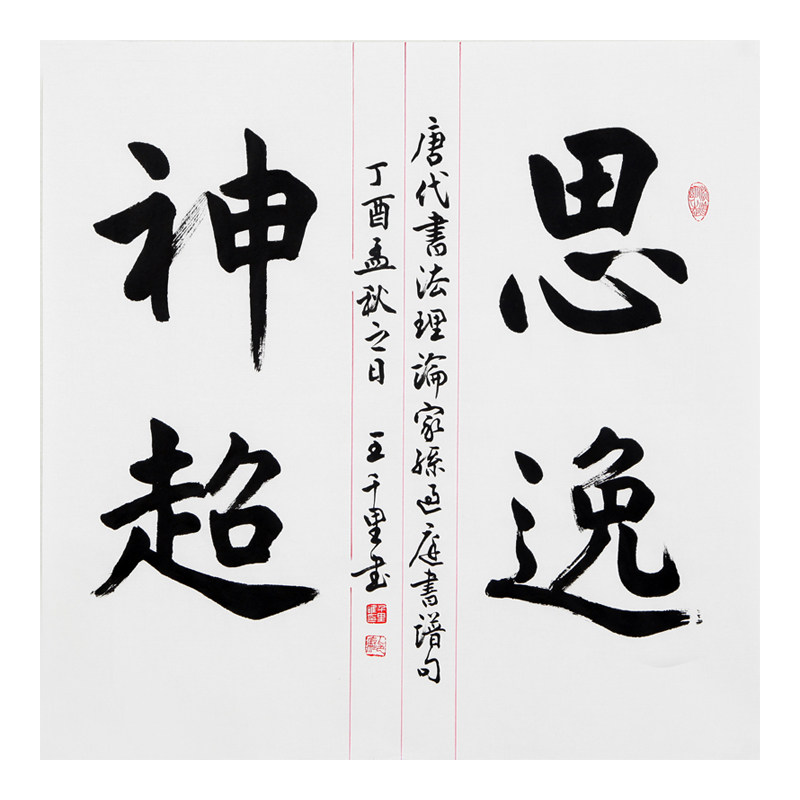 思逸
唐代書法理論家孫过庭書譜句
丁酉孟秋之日 王千里书
神超